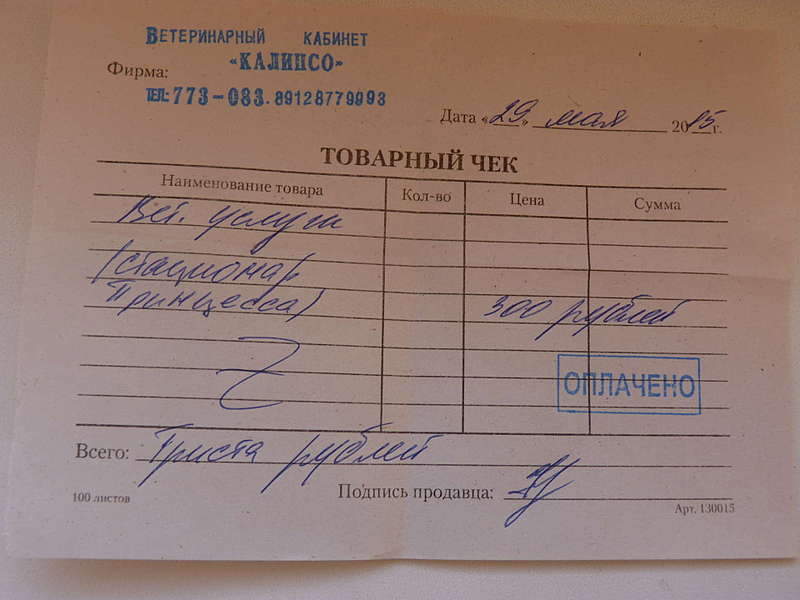 ВЕТЕРИНАРНЫЙ КАБИНЕТ
Фирма: «КАЛИПСО»
ТЕЛ: 773-083. 89128779993
Дата «29» мая 2015г.
ТОВАРНЫЙ ЧЕК
Наименование товара Кол-во Цена Сумма
Вет. услуги
(стационар
Принцесса) 300 рублей
ОПЛАЧЕНО
Всего: Триста рублей
Подпись продавца:
100 листов
Арт. 130015